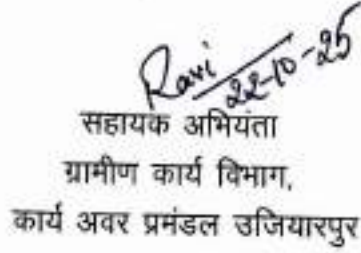 Ravi
22-10-25
सहायक अभियंता
ग्रामीण कार्य विभाग,
कार्य अवर प्रमंडल उजियारपुर